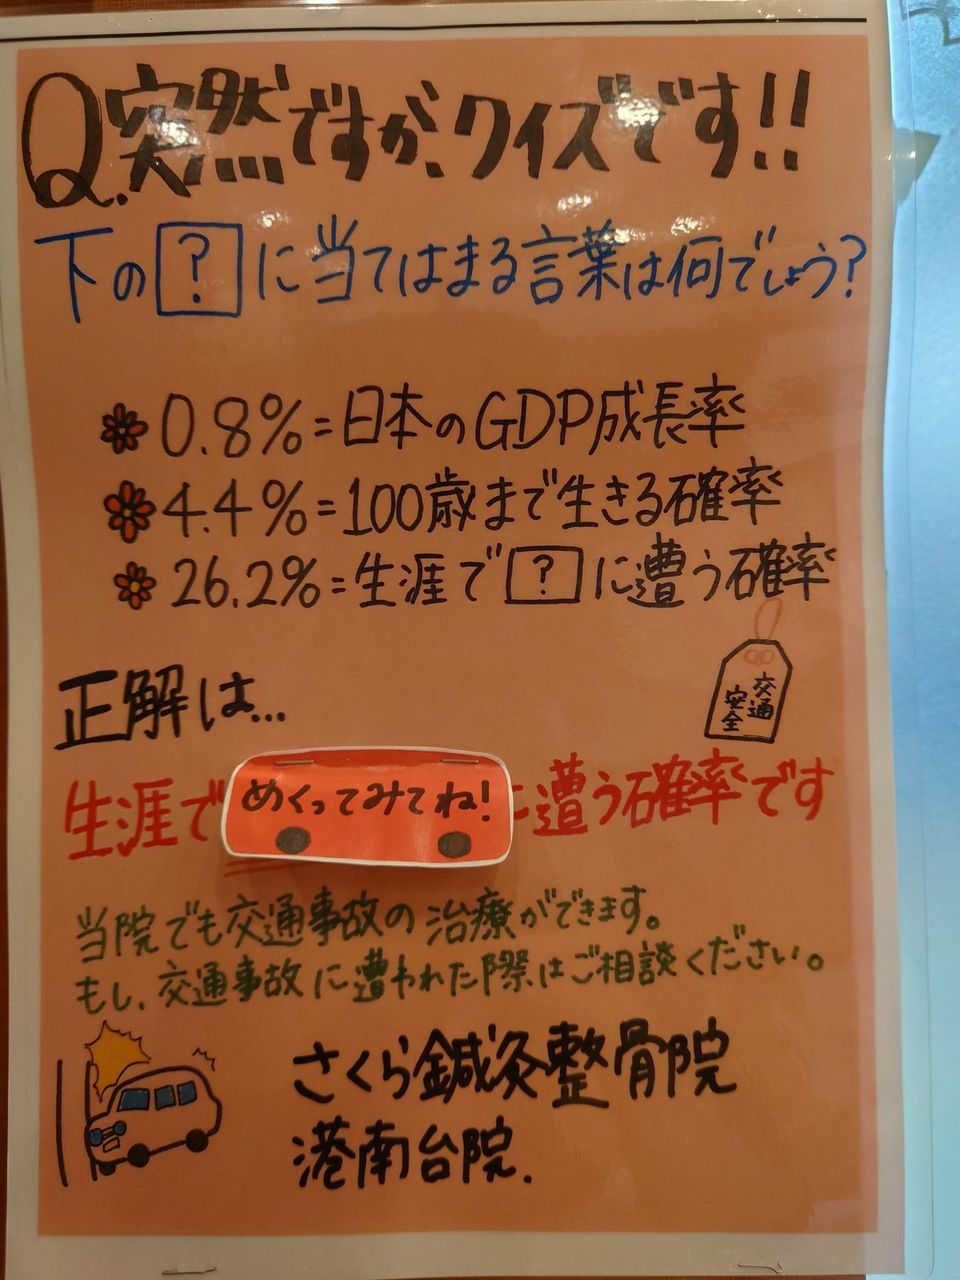 Q.突然ですが、クイズです!!
下の?に当てはまる言葉は何でしょう?
0.8%=日本のGDP成長率
4.4%=100歳まで生きる確率
26.2%=生涯で?に遭う確率
交通
安全
正解は...
生涯で めくってみてね! に遭う確率です
当院でも交通事故の治療ができます。
もし、交通事故に遭われた際はご相談ください。
さくら鍼灸整骨院
港南台院.